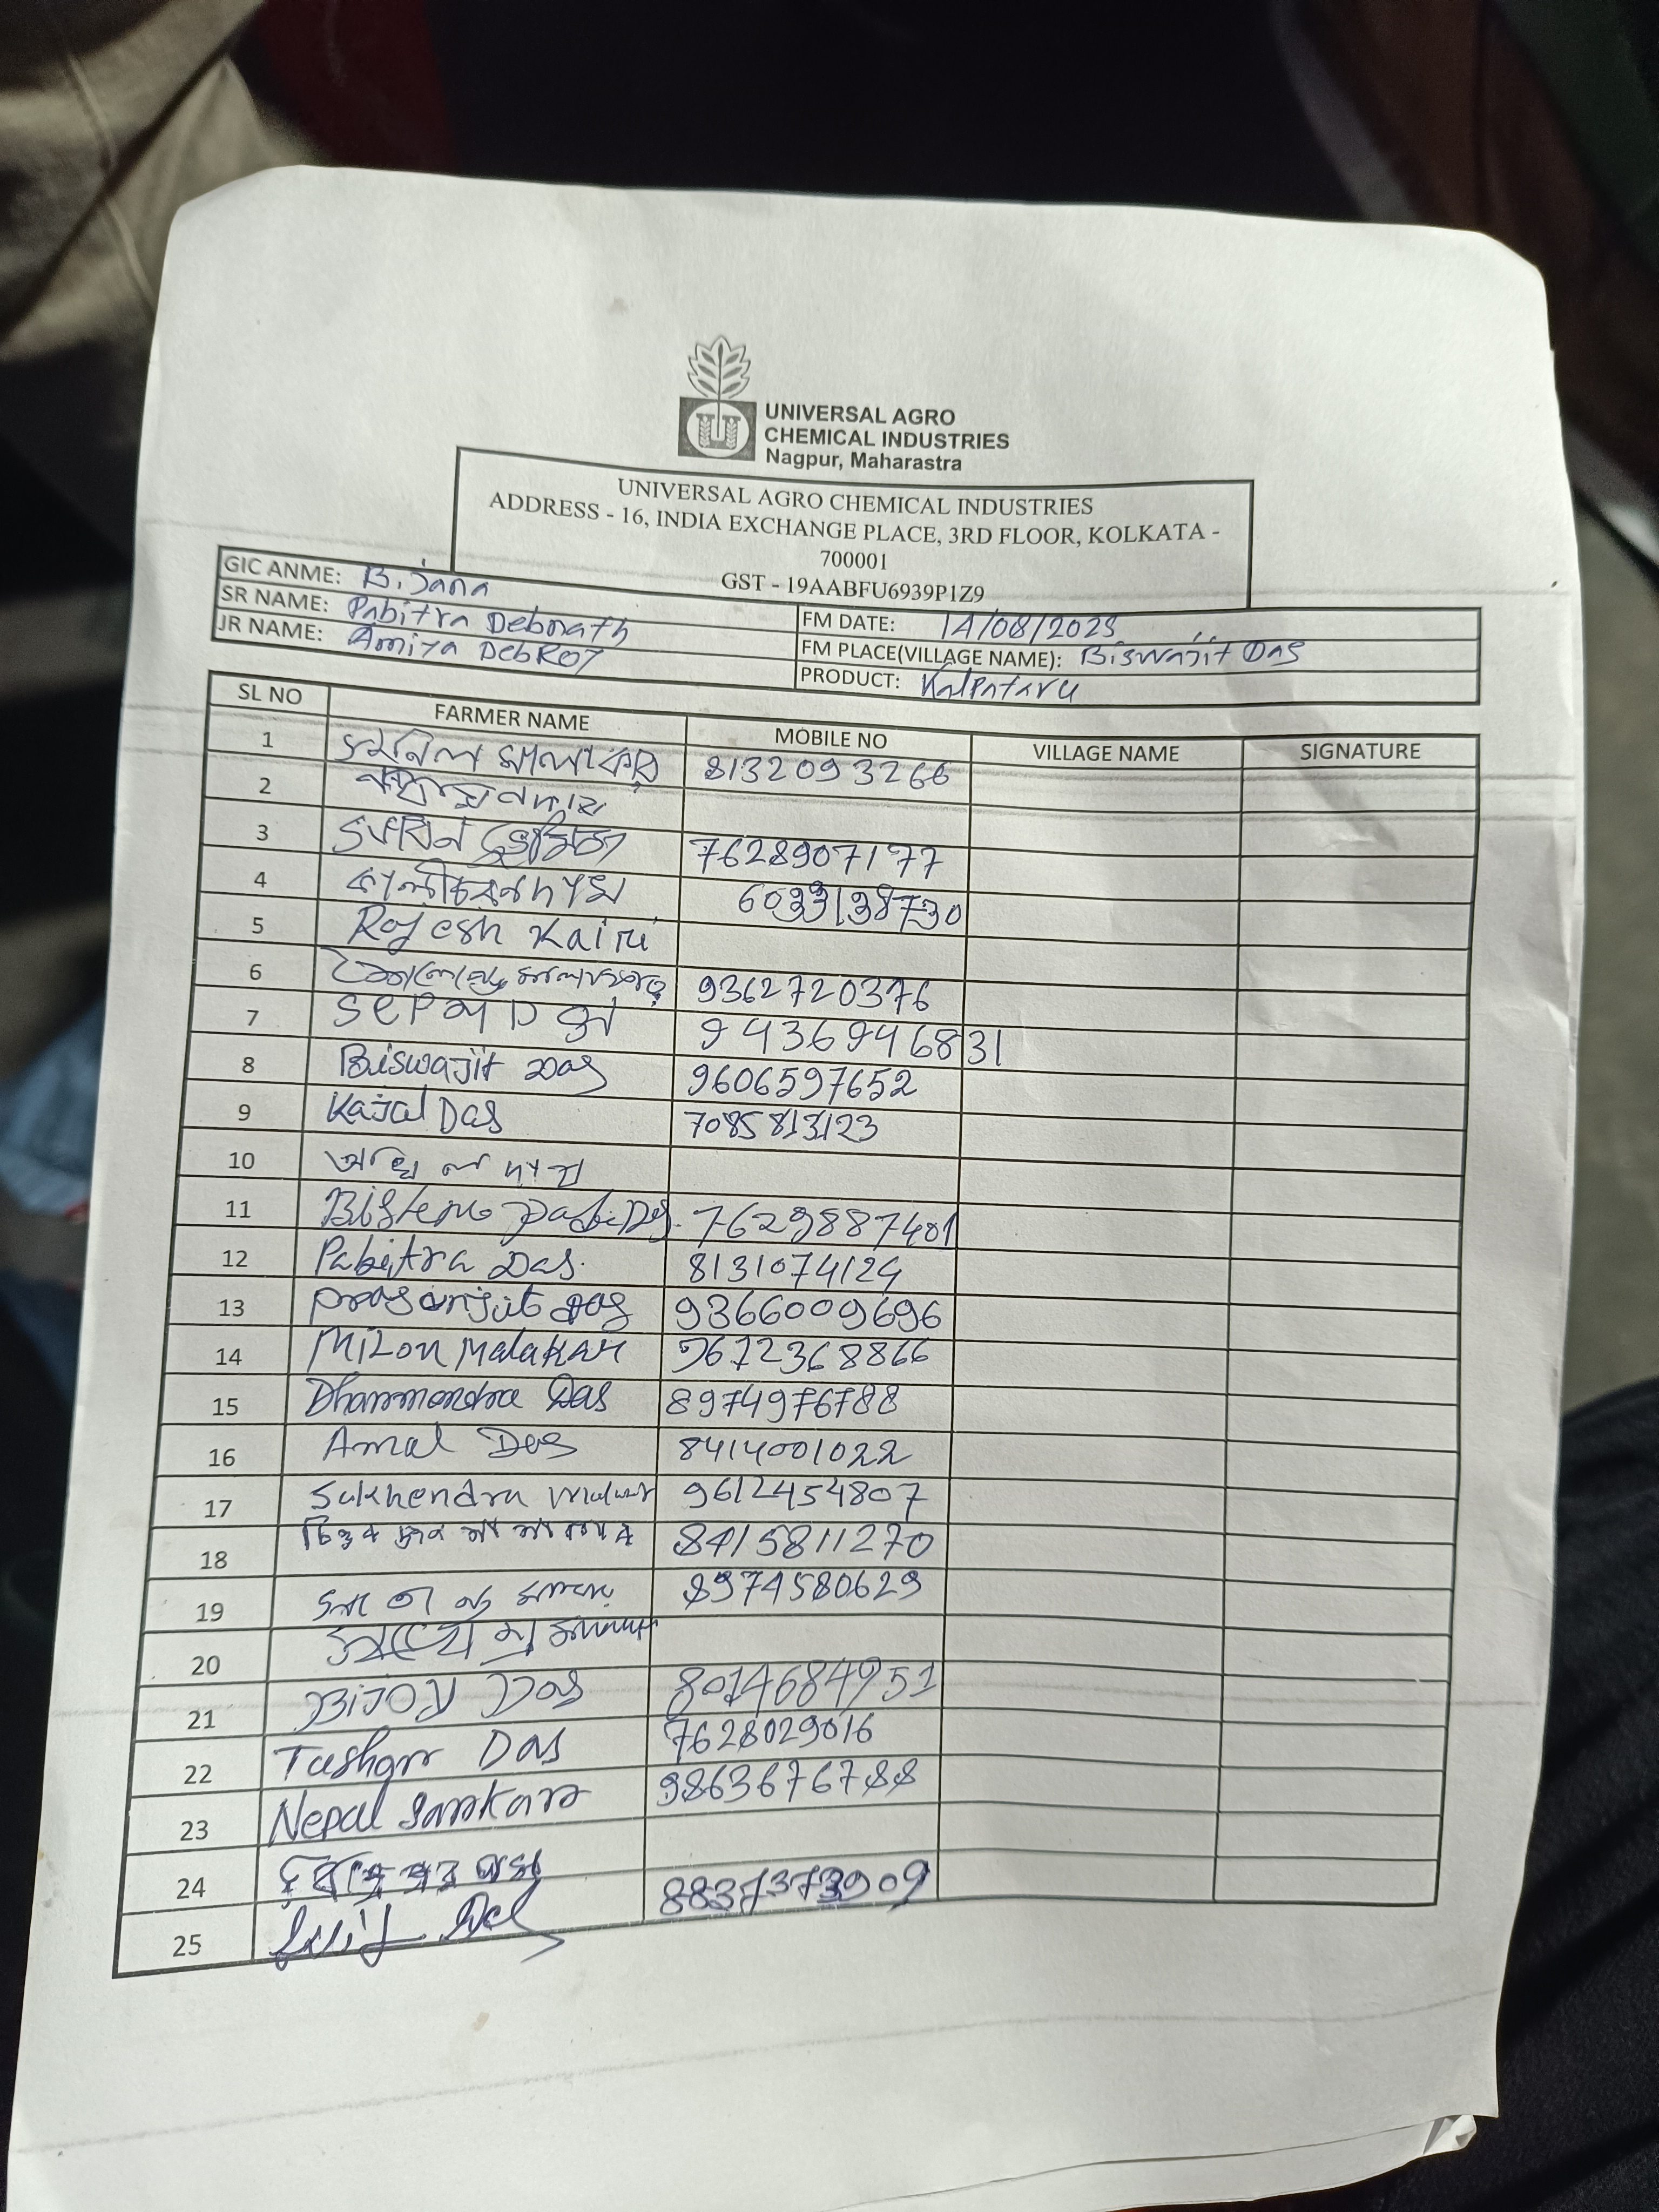 UNIVERSAL AGRO
CHEMICAL INDUSTRIES
Nagpur, Maharastra
UNIVERSAL AGRO CHEMICAL INDUSTRIES
ADDRESS - 16, INDIA EXCHANGE PLACE, 3RD FLOOR, KOLKATA -
700001
GST - 19AABFU6939P1Z9
GIC ANME: B. Jana
SR NAME: Pabitra Debnath
JR NAME: Amiya DebRoy
FM DATE: 14/08/2025
FM PLACE(VILLAGE NAME): Biswajit Das
PRODUCT: Kalpataru
SL NO FARMER NAME MOBILE NO VILLAGE NAME SIGNATURE
1 মালাকার 8132093266
2
3 7628907177
4 কালীচরন দাস
5 Rajesh Kairi
6 9362720376
7 9436946831
8 Biswajit Das 9606597652
9 Kajal Das 7085813123
10 অখিল দাস
11 7629887401
12 Pabitra Das. 8131074124
13 Prosanjit Das 9366009696
14 Milon Malakar 9672368866
15 Dharmendra Das 8974976788
16 Amal Das 8414001022
17 Sukhendra 9612454807
18 8415811270
19 8974580629
20
21 Bijoy Das 8014684951
22 Tushar Das 7628029016
23 Nepal Sarkar 9863676788
24
25 8837373909